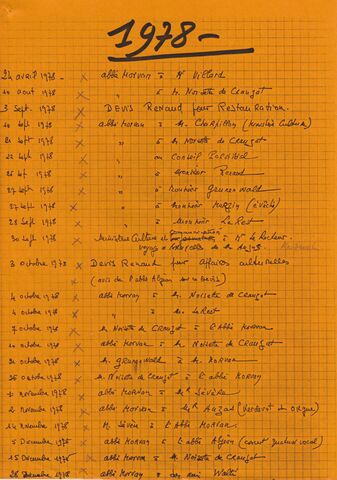 1978 -
24 avril 1978 - x abbé Morvan à Mr Villard
24 aout 1978 x " à M. Noisette de Crauzat
3 Sept. 1978 x DEVIS Renaud pour Restauration.
20 sept 1978 x abbé Morvan à M. Charpillon (Ministère Culture)
21 sept 1978 x " à M. Noisette de Crauzat
22 sept 1978 x " au Conseil Paroissial
1978 x " à Monsieur Renaud
27 sept 1978 x " à Monsieur Grunenwald
27 sept 1978 x " à Monsieur (évêché)
28 sept 1978 x " à Monsieur Le Rest
30 sept 1978 x Ministère Culture et à Mr le Recteur.
voyage à de Mr
3 octobre 1978 x Devis Renaud pour Affaires culturelles
(avis de l'abbé Alpin sur le Devis)
4 octobre 1978 x abbé Morvan à M. Noisette de Crauzat
4 octobre 1978 x " à M. Le Rest
7 octobre 1978 x M. Noisette de Crauzat à l'Abbé Morvan
20 octobre 1978 x abbé Morvan à M. Noisette de Crauzat
octobre 1978 x M. Grunenwald à M. Morvan
octobre 1978 x M. Noisette de Crauzat à l'abbé Morvan
novembre 1978 x abbé Morvan à Sévère
2 novembre 1978 x abbé Morvan à Auzas (Buffet d'orgue)
14 novembre 1978 x M. Sévère à l'Abbé Morvan.
5 Décembre 1978 x abbé Morvan à l'abbé Alpin
15 Décembre 1978 x abbé Morvan à M. Noisette de Crauzat
28 Décembre 1978 x abbé Morvan à